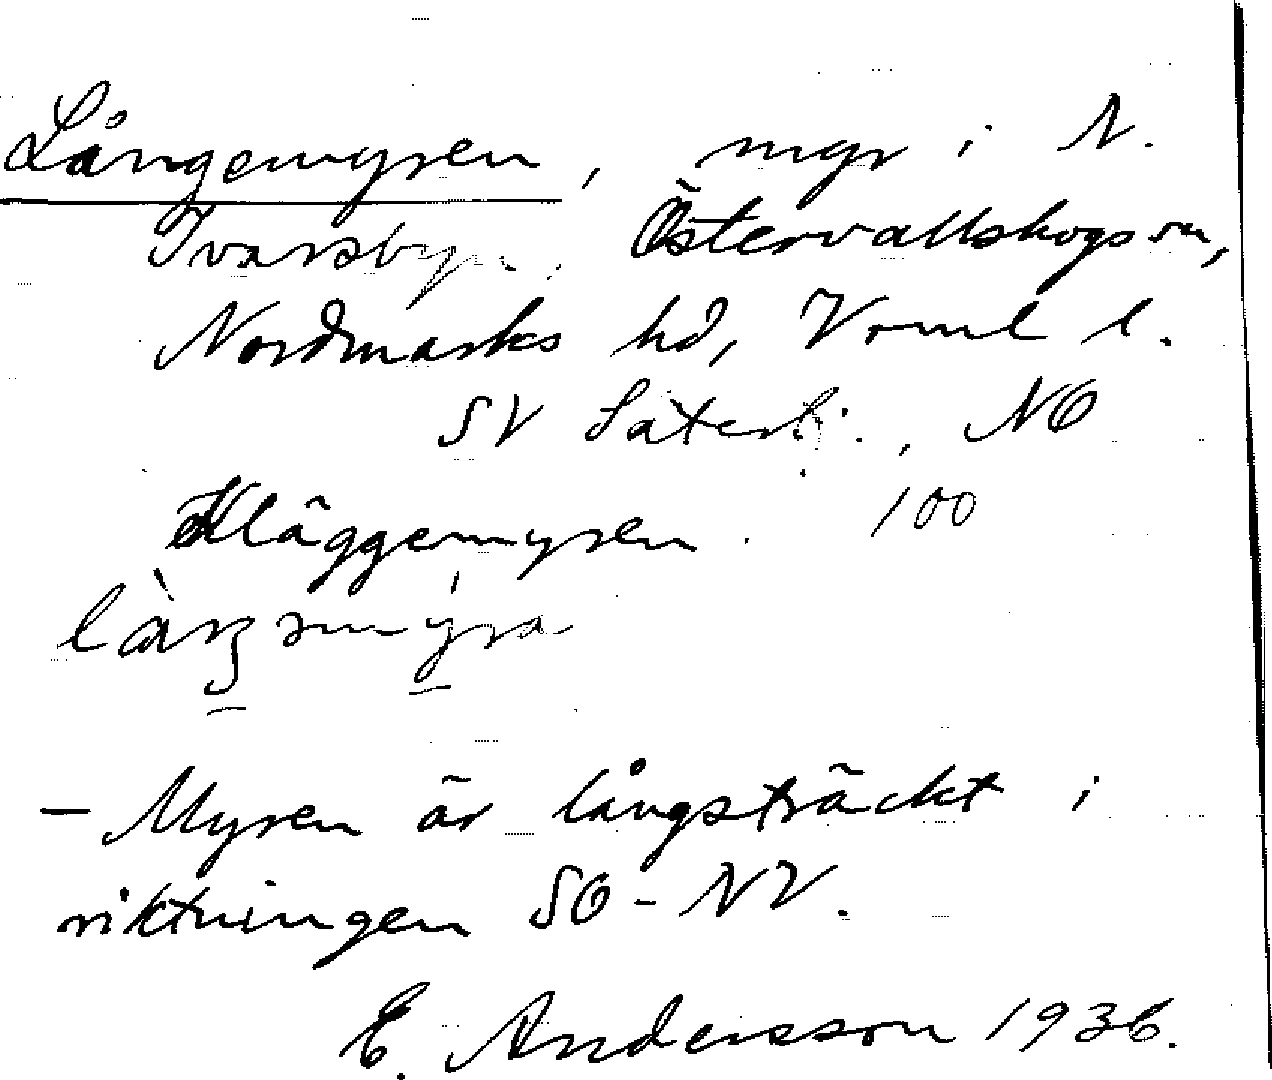 Långemyren, myr i N.
Ivarsbyn, Östervallskogs sn,
Nordmarks hd, Vrml l.
SV Säterb., NO
Kläggemyren. 100
- Myren är långsträckt i
riktningen SO-NV.
E. Andersson 1936.